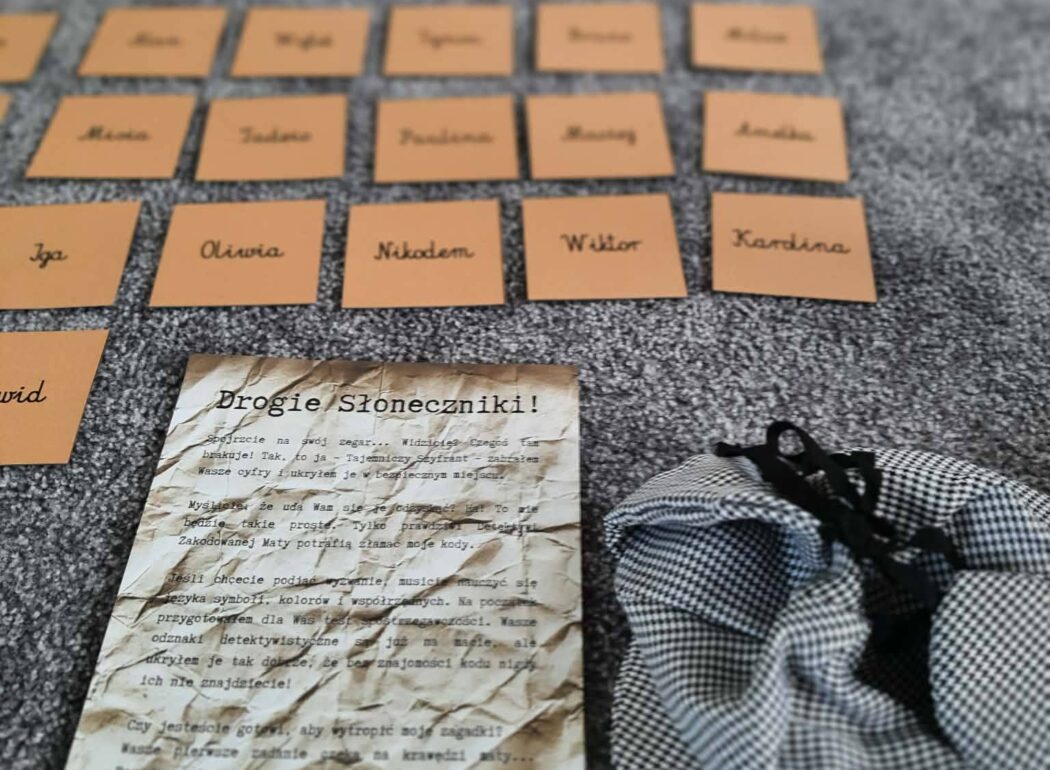 Misia Tadzio Paulina Maciej Amelka
Iga Oliwia Nikodem Wiktor Karolina
wid
Drogie Słoneczniki!
Spójrzcie na swój zegar... Widzicie? Czegoś tam
brakuje! Tak, to ja - Tajemniczy Szyfrant - zabrałem
Wasze cyfry i ukryłem je w bezpiecznym miejscu.
Myślicie, że uda Wam się je odzyskać? Ha! To nie
będzie takie proste. Tylko prawdziwi Detektywi
Zakodowanej Maty potrafią złamać moje kody.
Jeśli chcecie podjąć wyzwanie, musicie nauczyć się
języka symboli, kolorów i współrzędnych. Na początek
przygotowałem dla Was test spostrzegawczości. Wasze
odznaki detektywistyczne są już na macie, ale
ukryłem je tak dobrze, że bez znajomości kodu nigdy
ich nie znajdziecie!
Czy jesteście gotowi, aby wytropić moje zagadki?
Wasze pierwsze zadanie czeka na krawędzi maty...